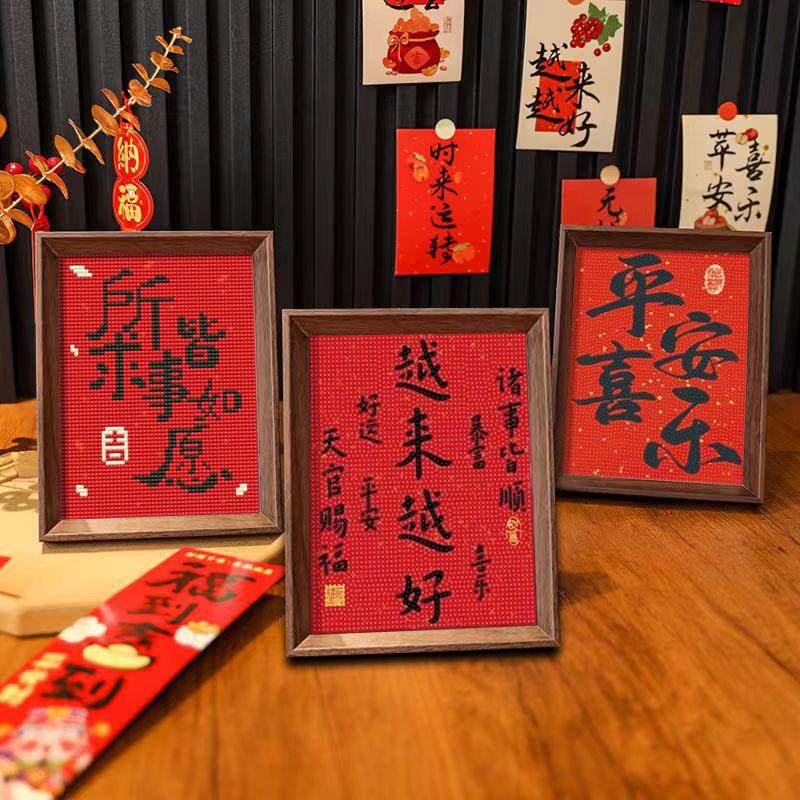 納福
越来
越好
时来运转
无
苹喜
安乐
所求
皆事
如愿
吉
诸事皆顺
暴富
喜乐
越来越好
好运
平安
天官赐福
平安
喜乐
福到
到